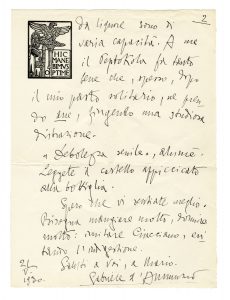 2
HIC
MANE
BIMVS
OPTIME
da liquore sono di
varia capacità. A me
il
fa tanto
bene che, spesso, dopo
il mio pasto solitario, ne pren-
do due, fingendo una studiosa
distrazione.
" Debolezza senile", ahimè.
Leggete il cartello appiccicato
alla bottiglia.
Spero che vi sentiate meglio.
Bisogna mangiare molto, dormire
molto: imitare
Saluti a Voi, a Mario.
Gabriele d'Annunzio
1930.